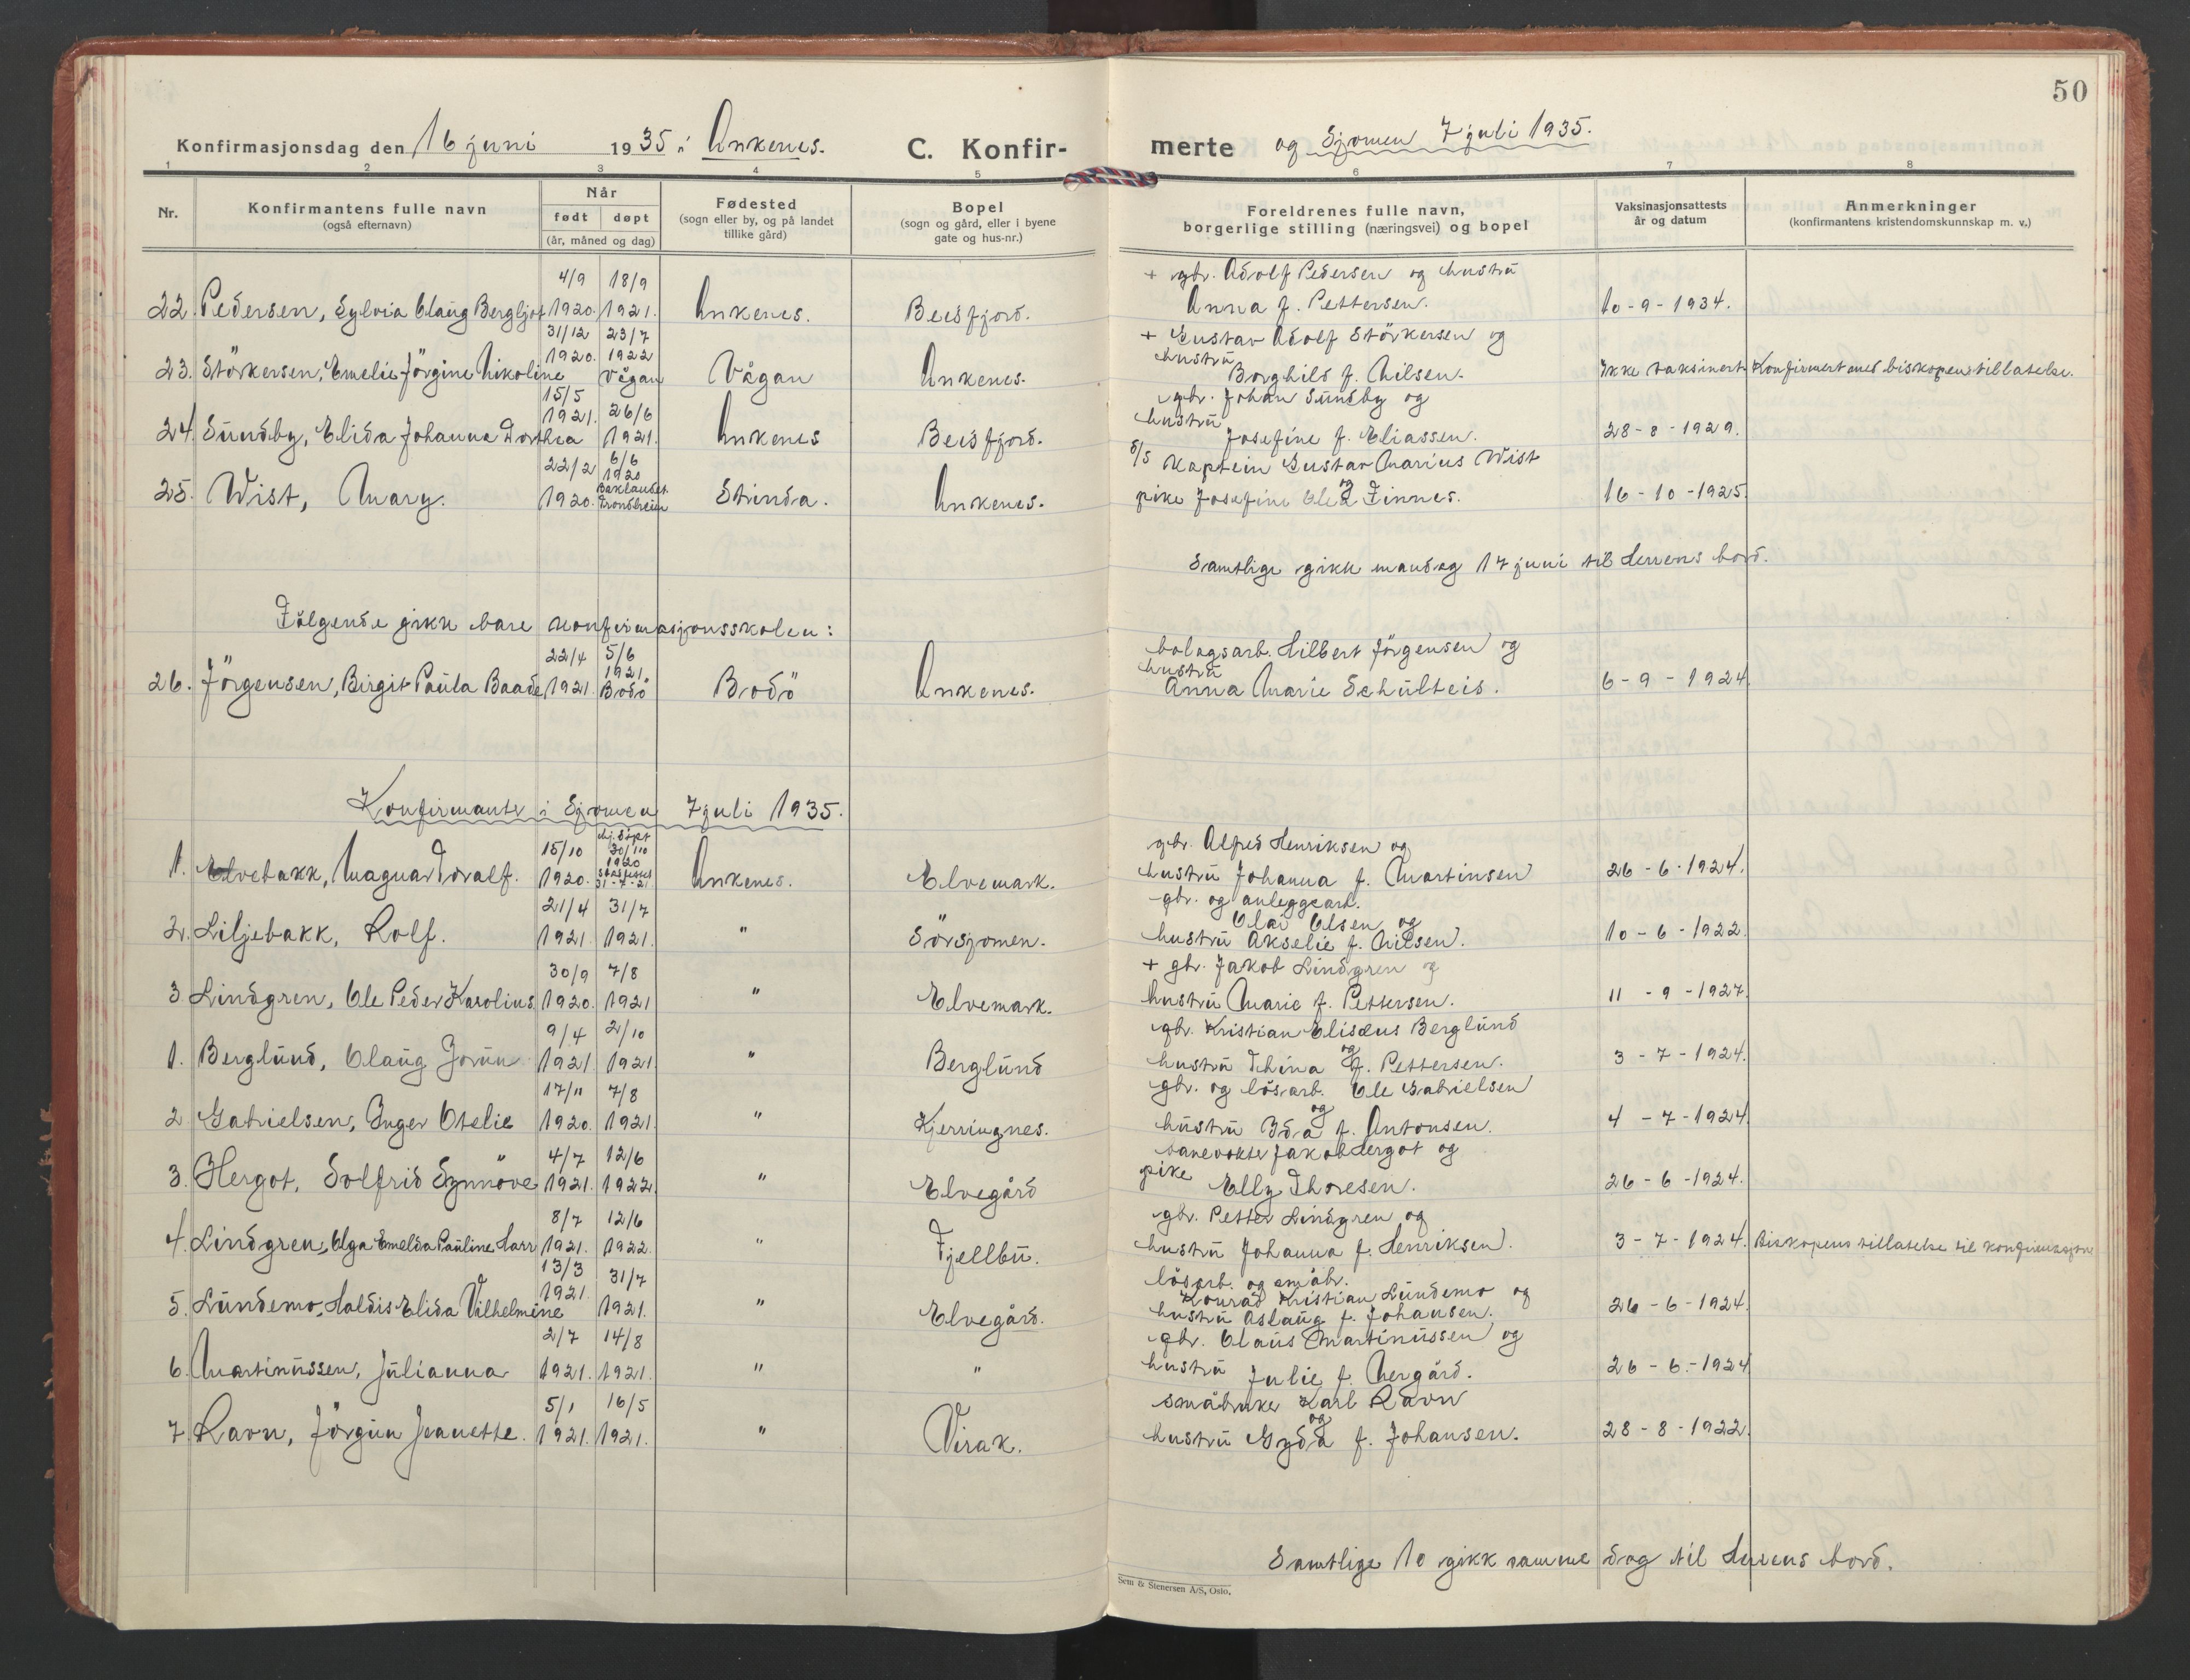 50
Konfirmasjonsdag den 16 juni 1935 i Ankenes. C. Konfir- merte og Sjomen 7 juli 1935.
1 2 3 4 5 6 7 8
Nr. Konfirmantens fulle navn (også efternavn) Når født døpt (år, måned og dag) Fødested (sogn eller by, og på landet tillike gård) Bopel (sogn og gård, eller i byene gate og hus-nr.) Foreldrenes fulle navn, borgerlige stilling (næringsvei) og bopel Vaksinasjonsattests år og datum Anmerkninger (konfirmantens kristendomskunnskap m. v.)
4/9 18/9 + gbr. Adolf Pedersen og hustru
22. Pedersen, Sylvia Olaug Bergljot 1920. 1921. Ankenes. Beisfjord. Anna f. Pettersen. 10-9-1934.
31/12 23/7 + Gustav Adolf Störkersen og
23. Störkersen, Emelie Jörgine Nikoline 1920. 1922 Vågan Vågan Ankenes. hustru Borghild f. Nilsen. Ikke vaksinert. Konfirmert med biskopens tillatelse.
15/5 26/6 gbr. Johan Sundby og
24. Sundby, Elida Johanna Dorthea 1921. 1921. Ankenes Beisfjord. hustru Josefine f. Eliassen. 28-8-1929.
22/2 6/6 d/s Kaptein Gustav Marius Wist og
25. Wist, Mary. 1920. 1920 Baklandet Trondheim Strinda. Ankenes. pike Josefine Olea Finnes. 16-10-1925.
Samtlige gikk mandag 17 juni til Herrens bord.
Fölgende gikk bare konfirmasjonsskolen:
22/4 5/6 bolagsarb. Hilbert Jörgensen og
26. Jörgensen, Birgit Paula Baade 1921. 1921. Bodö Bodö Ankenes. hustru Anna Marie Schulteis. 6-9-1924.
Konfirmanter i Sjomen 7 juli 1935.
15/10 hj.döpt 30/10 1920 gbr. Alfred Henriksen og
1. Elvebakk, Magnar Toralf. 1920. 31-7-21 Ankenes. Elvemark. hustru Johanna f. Martinsen 26-6-1924.
21/4 31/7 gbr. og anleggsarb. Olai Olsen og
2. Liljebakk, Rolf. 1921. 1921. " Sörsjomen. hustru Akselie f. Nilsen. 10-6-1922.
30/9 7/8 + gbr. Jakob Lindgren og
3 Lindgren, Ole Peder Karolius 1920. 1921 " Elvemark. hustru Marie f. Pettersen. 11-9-1927.
9/4 2/10 gbr. Kristian Elisæus Berglund og
1. Berglund, Olaug Jorun 1921. 1921 " Berglund hustru Thina f. Pettersen. 3-7-1924.
17/11 7/8 gbr. og lösarb. Ole Gabrielsen og
2 Gabrielsen, Inger Otelie 1920. 1921. " Kjerringnes. hustru Ida f. Antonsen. 4-7-1924
4/7 12/6 banevokter Jakob Hergot og
3. Hergot, Solfrid Synnöve 1921. 1922. " Elvegård pike Elly Thoresen. 26-6-1924.
8/7 12/6 gbr. Petter Lindgren og
4. Lindgren, Olga Emelda Pauline Harr 1921. 1922. " Fjellbu. hustru Johanna f. Henriksen. 3-7-1924. Biskopens tillatelse til konfirmasjon
13/3 31/7 lösarb. og småbr. Konrad Kristian Lundemo og
5. Lundemo, Haldis Elida Vilhelmine 1921. 1921. " Elvegård. hustru Aslaug f. Johansen. 26-6-1924.
2/7 14/8 gbr. Olaus Martinussen og
6. Martinussen, Julianna 1921. 1921. " " hustru Julie f. Nergård. 26-6-1924
5/1 16/5 småbruker Karl Ravn og
7. Ravn, Jörgun Jeanette. 1921. 1921. " Virak. hustru Gyda f. Johansen. 28-8-1922.
Samtlige 10 gikk samme dag til Herrens bord.
Sem & Stenersen A/S, Oslo.